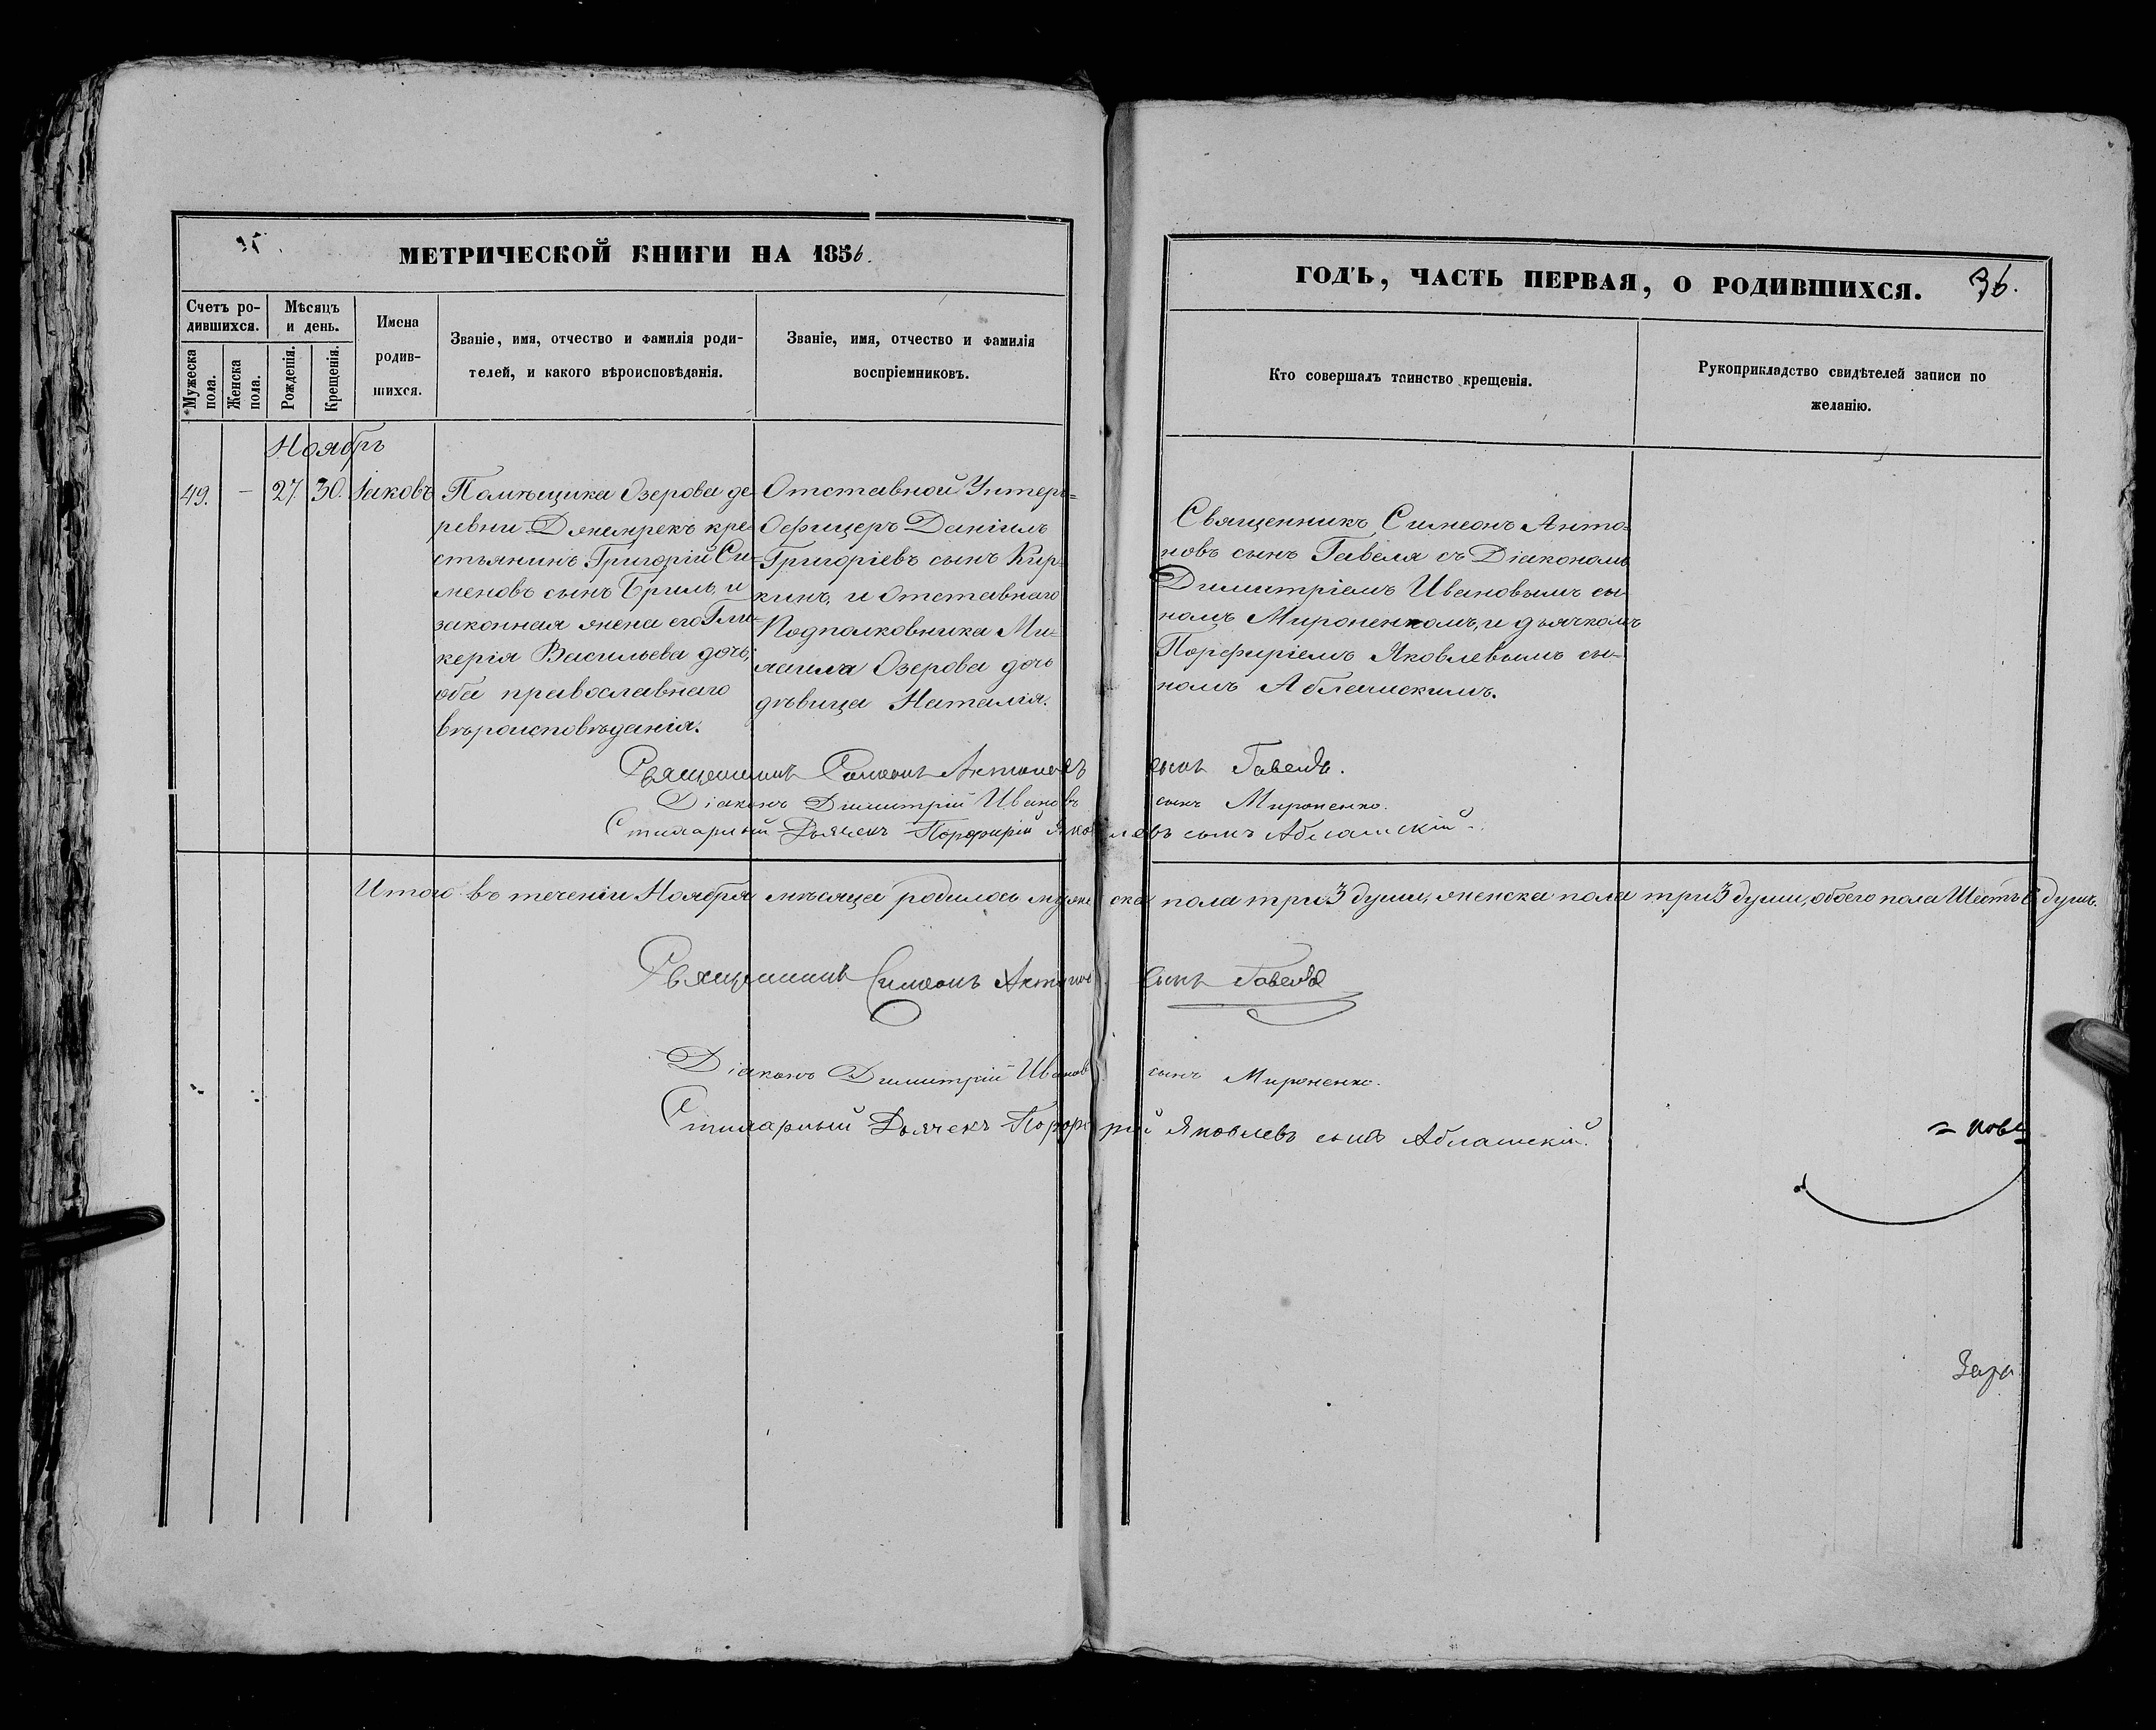 МЕТРИЧЕСКОЙ КНИГИ НА 1856.
ГОДЪ, ЧАСТЬ ПЕРВАЯ, О РОДИВШИХСЯ.
36.
Счетъ ро-
дившихся.
Мужеска
пола.
Женска
пола.
Мѣсяцъ
и день.
Рожденія.
Крещенія.
Имена
родив-
шихся.
Званіе, имя, отчество и фамилія роди-
телей, и какого вѣроисповѣданія.
Званіе, имя, отчество и фамилія
воспріемниковъ.
Кто совершалъ таинство крещенія.
Рукоприкладство свидѣтелей записи по
желанію.
Ноябрь
49.
—
27.
30.
Іаковъ
Помѣщика Озерова де-
ревни кре-
стьянинъ Григорій Си-
меновъ сынъ Бриль, и
законная жена его Гли-
керія Васильева дочь,
оба православнаго
вѣроисповѣданія.
Отставной Унтеръ=
Офицеръ Даніилъ
Григоріевъ сынъ Кир-
кинъ, и Отставнаго
Подполковника Ми-
хаила Озерова дочь
дѣвица Наталія.
Священникъ Симеонъ Анто-
новъ сынъ Гавеля съ Діакономъ
Димитріемъ Ивановымъ сы-
номъ Мироненкомъ, и дьячкомъ
Порфиріемъ Яковлевымъ сы-
номъ Аблашскимъ.
Священникъ Симеонъ Антоновъ сынъ Гавеля.
Діаконъ Димитрій Ивановъ сынъ Мироненко.
Стихарный Дьячекъ Порфирій Яковлевъ сынъ Аблашскій.
Итого въ теченіи Ноября мѣсяца родилось мужеска пола три 3 души, женска пола три 3 души, обоего пола Шесть 6 душъ.
Священникъ Симеонъ Антонов сынъ Гавеля
Діаконъ Димитрій Иванов сынъ Мироненко.
Стихарный Дьячекъ Порфирій Яковлевъ сынъ Аблашскій.